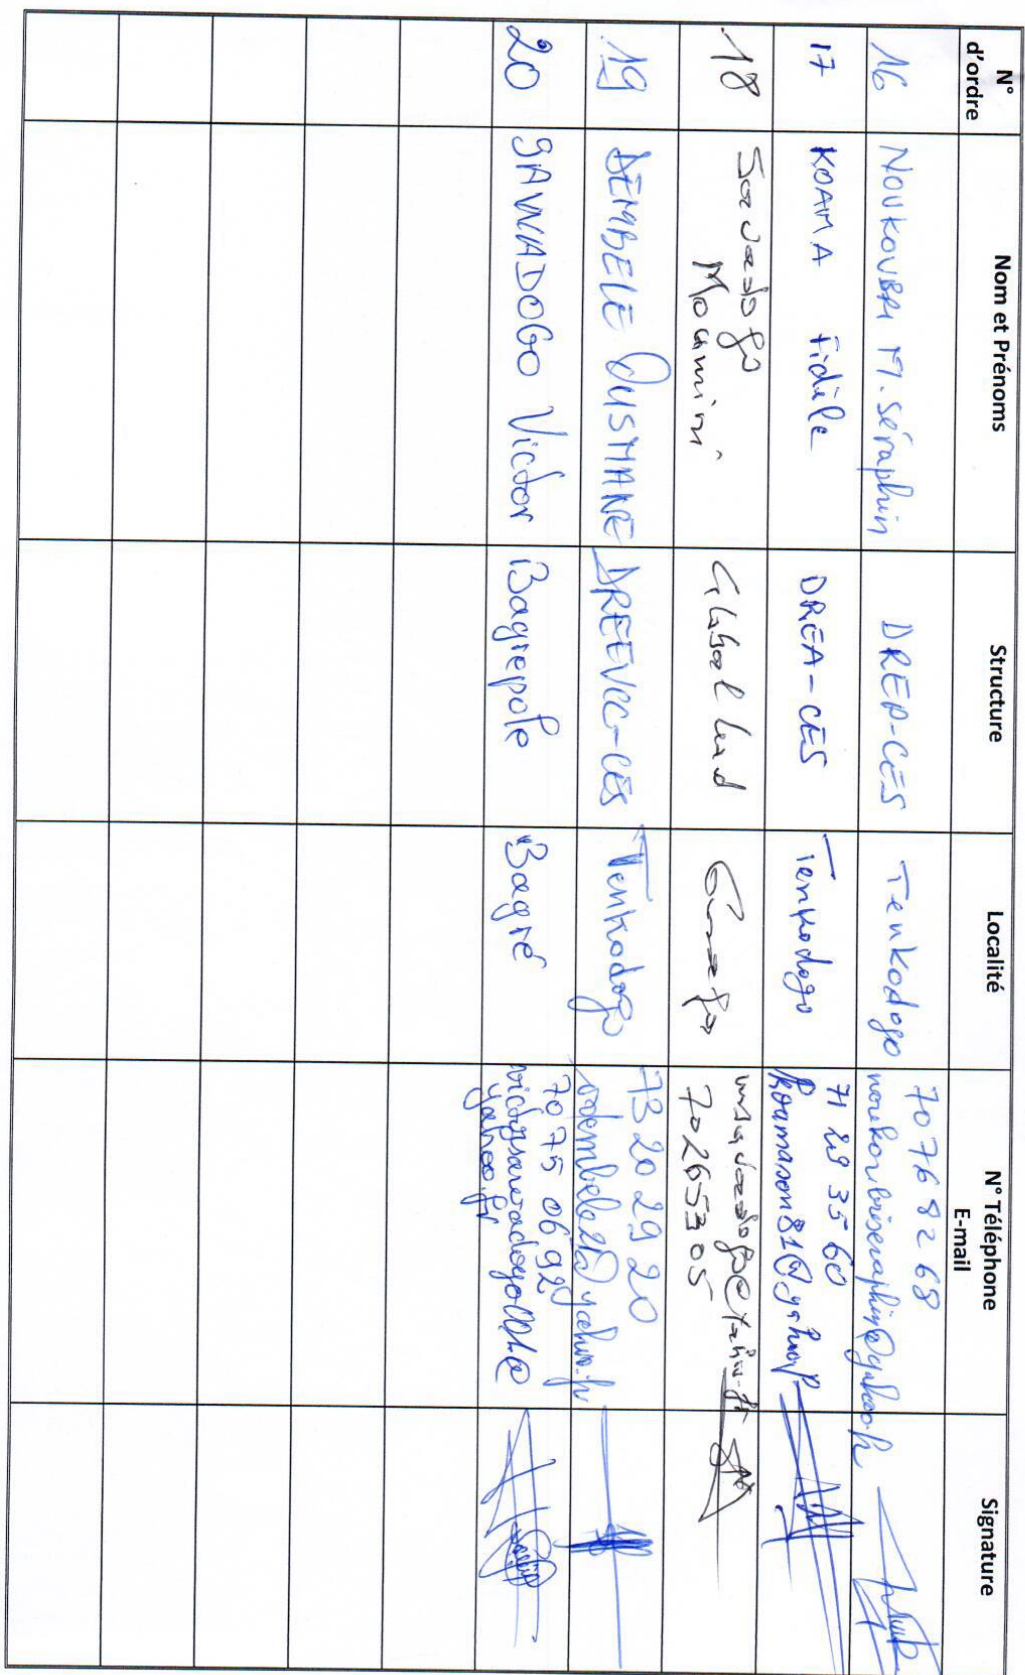 N° d'ordre Nom et Prénoms Structure Localité N° Téléphone E-mail Signature
16 NOUKOUBRI M. Séraphin DREP-CES Tenkodogo 70768268 noukoubriseraphin@yahoo.fr
17 KOAMA Fidèle DREA-CES Tenkodogo 71 29 35 60 koamason81@yahoo.fr
18 Sawadogo Moumini Global Lead 70265305
19 DEMBELE OUSMANE DREEVCC-CES Tenkodogo 73 20 29 20 odembele21@yahoo.fr
20 SAWADOGO Victor Bagrepole Bagré 70 75 06 92 yahoo.fr